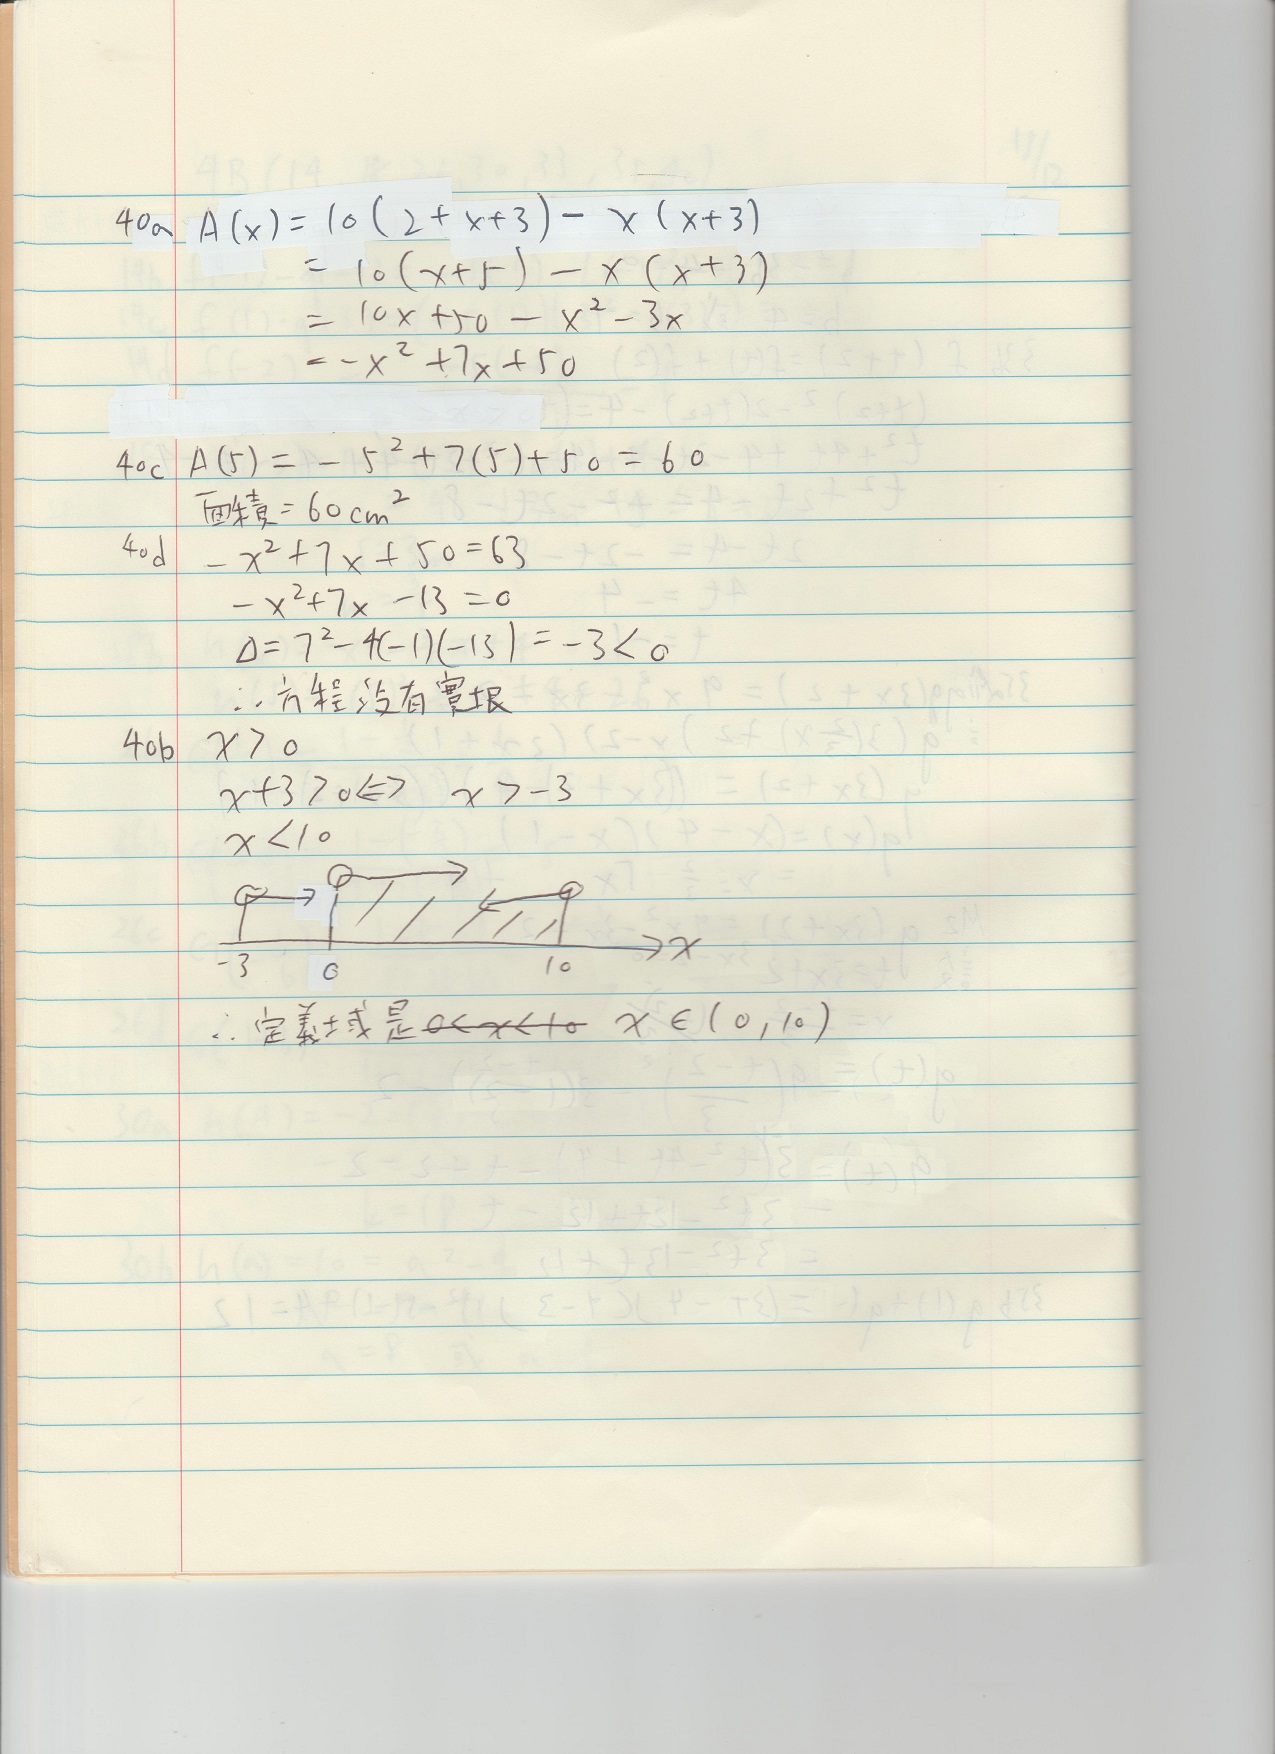 40a A(x) = 10(2+x+3) - x(x+3)
= 10(x+5) - x(x+3)
= 10x+50 - x² - 3x
= -x² + 7x + 50
40c A(5) = -5² + 7(5) + 50 = 60
面積 = 60cm²
40d -x² + 7x + 50 = 63
-x² + 7x - 13 = 0
Δ = 7² - 4(-1)(-13) = -3 < 0
∴ 方程沒有實根
40b x > 0
x+3 > 0 ⇔ x > -3
x < 10
-3 0 10 x
∴ 定義域是 0 < x < 10 x ∈ (0, 10)